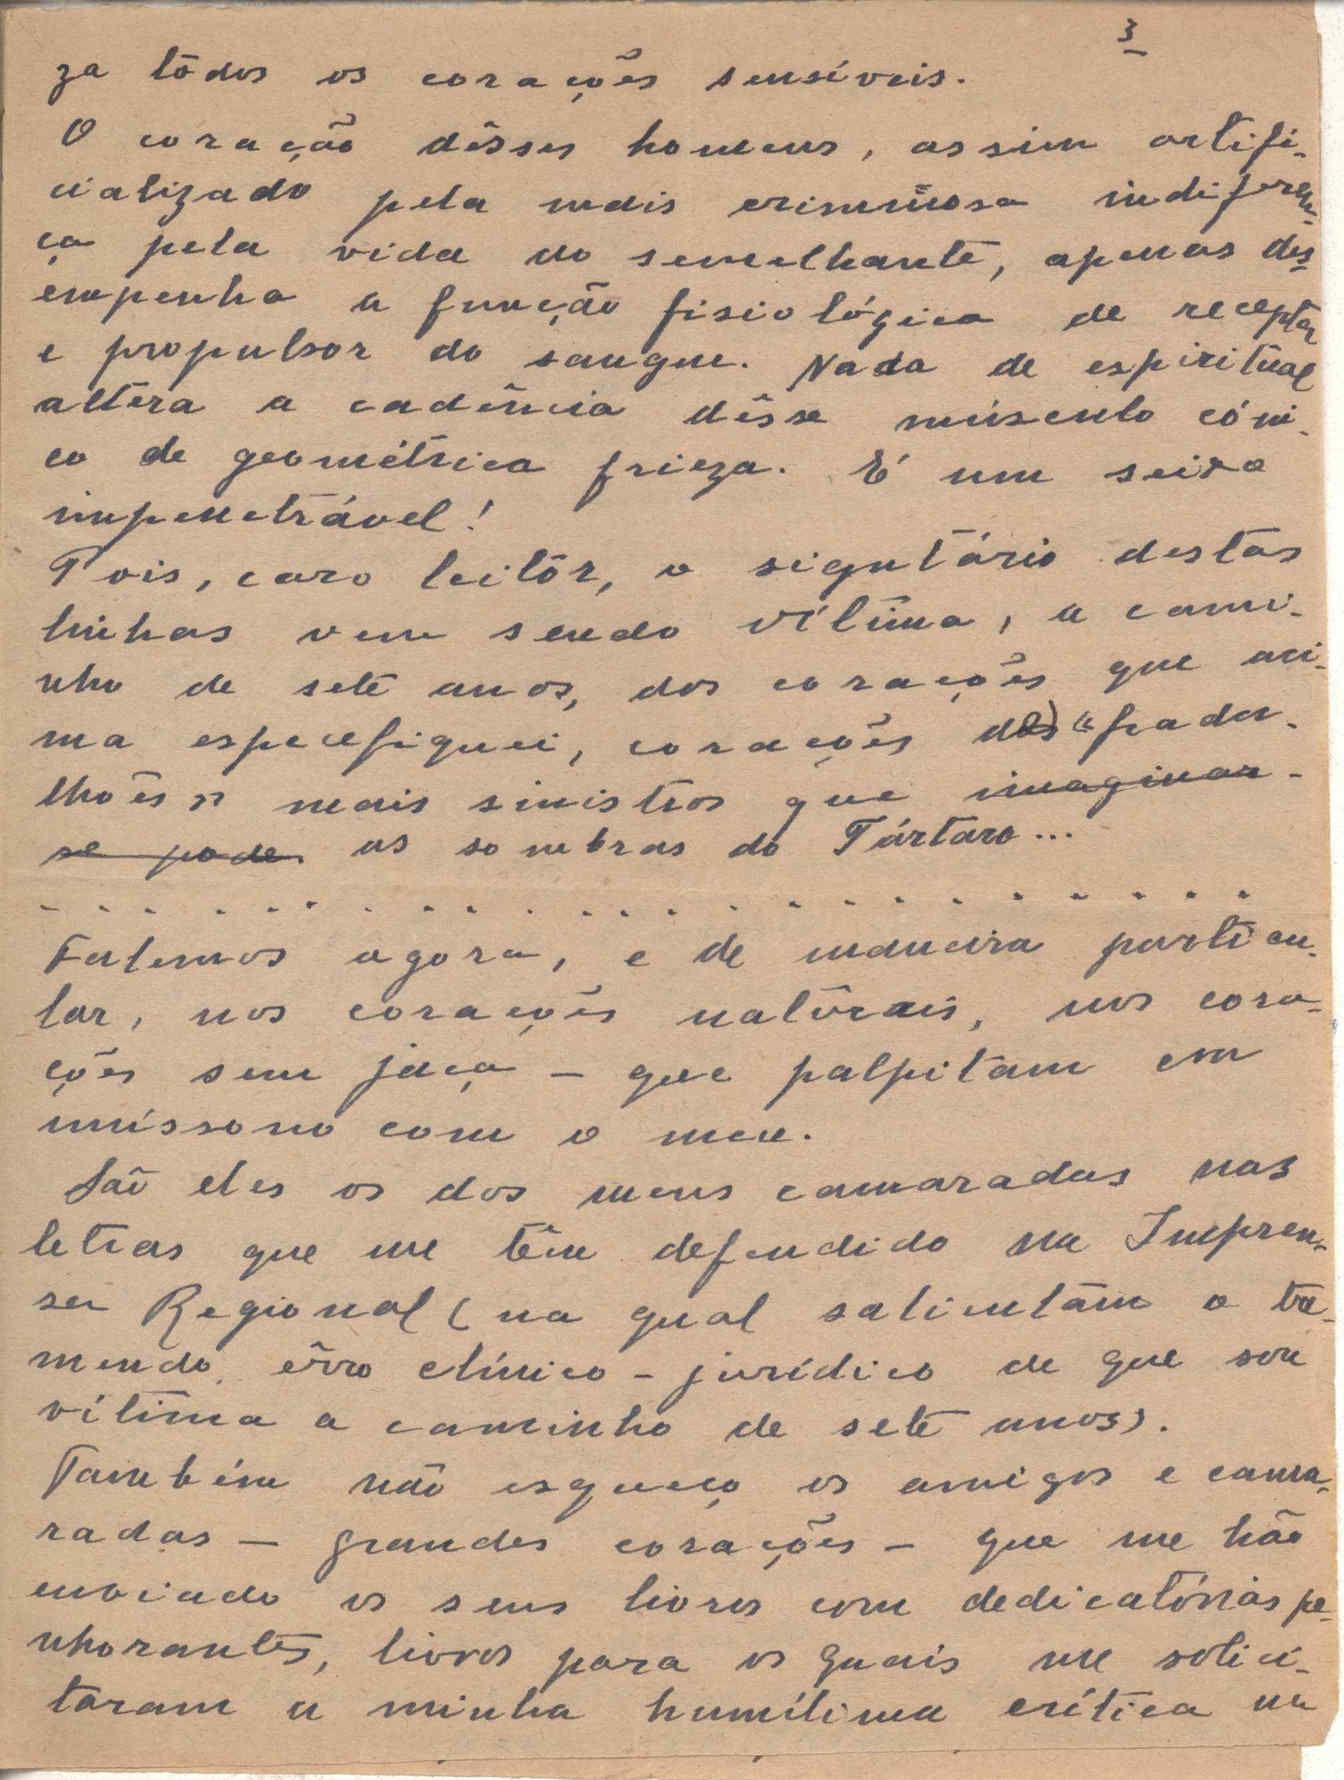 3
za todos os corações sensíveis.
O coração dêsses homens, assim artifi-
cializado pela mais criminosa indiferen-
ça pela vida do semelhante, apenas des-
empenha a função fisiológica de receptor
e propulsor do sangue. Nada de espiritual
altera a cadência dêsse músculo cóni-
co de geométrica frieza. É um seixo
impenetrável!
Pois, caro leitôr, o signatário destas
linhas vem sendo vítima, a cami-
nho de sete anos, dos corações que aci-
ma especefiquei, corações de «frada-
lhões» mais sinistros que imaginar-
se pode. as sombras do Tártaro...
. . . . . . . . . . . . . . . . . . . . . .
Falemos agora, e de maneira particu-
lar, nos corações naturais, nos cora-
ções sem jaça - que palpitam em
uníssono com o meu.
São eles os dos meus camaradas nas
letras que me têm defendido na Impren-
sa Regional (na qual salientam o tre-
mendo êrro clínico-jurídico de que sou
vítima a caminho de sete anos).
Também não esqueço os amigos e cama-
radas - grandes corações - que me hão
enviado os seus livros com dedicatórias pe-
nhorantes, livros para os quais me solici-
taram a minha humílima crítica na